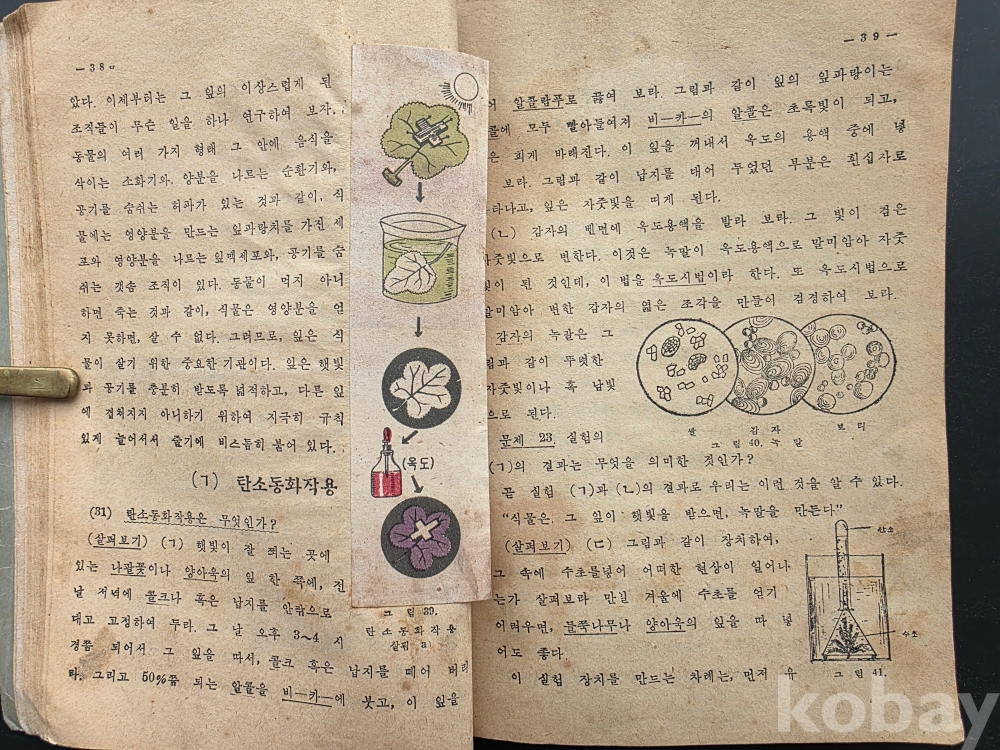 —38—
았다. 이제부터는 그 잎의 이상스럽게 된
조직들이 무슨 일을 하나 연구하여 보자.
동물의 여러 가지 형태 그 안에 음식을
삭이는 소화기와, 양분을 나르는 순환기와,
공기를 숨쉬는 허파가 있는 것과 같이, 식
물에는 영양분을 만드는 잎파랑치를 가진 세
포와 영양분을 나르는 잎맥세포와, 공기를 숨
쉬는 갯솜 조직이 있다. 동물이 먹지 아니
하면 죽는 것과 같이, 식물은 영양분을 얻
지 못하면, 살 수 없다. 그러므로, 잎은 식
물이 살기 위한 중요한 기관이다. 잎은 햇빛
과 공기를 충분히 받도록 넓적하고, 다른 잎
에 겹쳐지지 아니하기 위하여 지극히 규칙
있게 늘어서서 줄기에 비스듬히 붙어 있다.
(ㄱ) 탄소동화작용
(31) 탄소동화작용은 무엇인가?
(살펴보기) (ㄱ) 햇빛이 잘 쬐는 곳에
있는 나팔꽃이나 양아욱의 잎 한 쪽에, 전
날 저녁에 콜크나 혹은 납지를 안팎으로
대고 고정하여 두라. 그 날 오후 3~4 시
경쯤 되어서 그 잎을 따서, 콜크 혹은 납지를 떼어 버리
라. 그리고 50%쯤 되는 알콜을 비—카—에 붓고, 이 잎을
(옥도)
그 림 39.
탄소동화작용
실험 a
—39—
어 알콜람푸로 끓여 보라. 그림과 같이 잎의 잎파랑이는
콜에 모두 빨아들여져 비—카—의 알콜은 초록빛이 되고,
은 희게 바래진다. 이 잎을 꺼내서 옥도의 용액 중에 넣
보라. 그림과 같이 납지를 대어 두었던 부분은 흰십자로
타나고, 잎은 자줏빛을 띠게 된다.
(ㄴ) 감자의 벤면에 옥도용액을 발라 보라. 그 빛이 검은
자줏빛으로 변한다. 이것은 녹말이 옥도용액으로 말미암아 자줏
빛이 된 것인데, 이 법을 옥도시법이라 한다. 또 옥도시법으로
말미암아 변한 감자의 엷은 조각을 만들어 검경하여 보라.
감자의 녹말은 그
림과 같이 뚜렷한
자줏빛이나 혹 남빛
으로 된다.
쌀 감자 보리
그 림 40. 녹 말
문제 23. 실험의
(ㄱ)의 결과는 무엇을 의미한 것인가?
곧 실험 (ㄱ)과 (ㄴ)의 결과로 우리는 이런 것을 알 수 있다.
“식물은, 그 잎이 햇빛을 받으면, 녹말을 만든다”
(살펴보기) (ㄷ) 그림과 같이 장치하여,
그 속에 수초를넣어 어떠한 현상이 일어나
는가 살펴보라 만일 겨울에 수초를 얻기
어려우면, 들쭉나무나 양아욱의 잎을 따 넣
어도 좋다.
이 실험 장치를 만드는 차례는, 먼저 유
산소
수초
그 림 41.
kobay